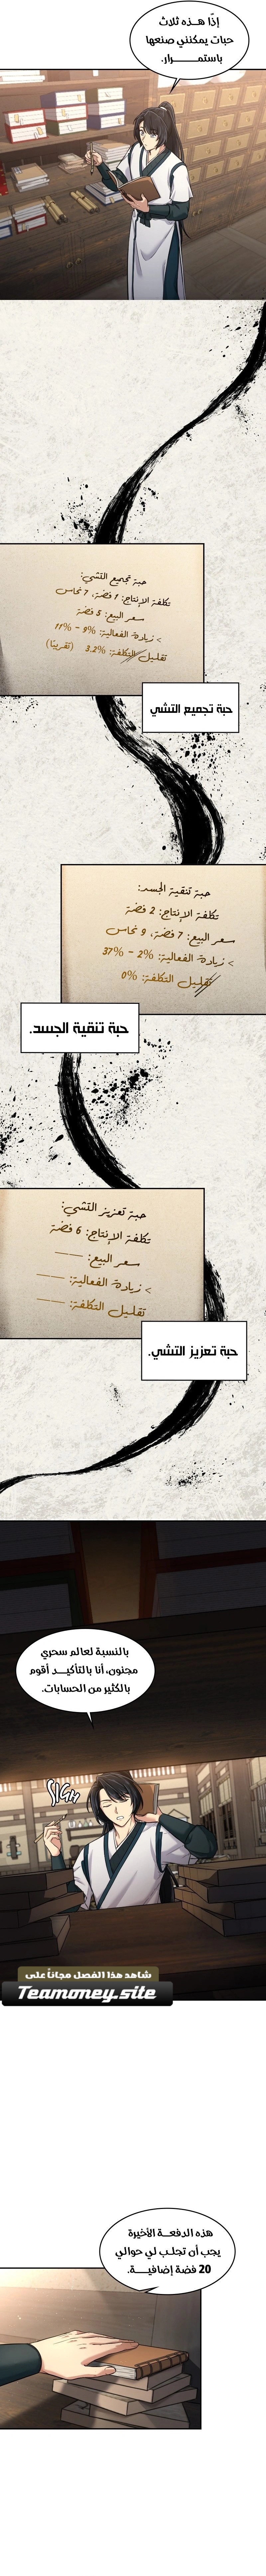 إذًا هــذه ثلاث
حبات يمكنني صنعها
باستمـــــــرار.
حبة تجميع التشي:
تكلفة الإنتاج: 1 فضة، 7 نحاس
سعر البيع: 5 فضة
> زيادة الفعالية: 9% - 11%
تقليل التكلفة: 3.2% (تقريبًا)
حبة تجميع التشي
حبة تنقية الجسد:
تكلفة الإنتاج: 2 فضة
سعر البيع: 7 فضة، 9 نحاس
> زيادة الفعالية: 2% - 37%
تقليل التكلفة: 0%
حبة تنقية الجسد.
حبة تعزيز التشي:
تكلفة الإنتاج: 6 فضة
سعر البيع: ——
> زيادة الفعالية: ——
تقليل التكلفة: ——
حبة تعزيز التشي.
بالنسبة لعالم سحري
مجنون، أنا بالتأكيـــد أقوم
بالكثير من الحسابات.
SIGH
شاهد هذا الفصل مجاناً على
Teamoney.site
هذه الدفعــة الأخيرة
يجب أن تجلـب لي حوالي
20 فضة إضافيـــة.